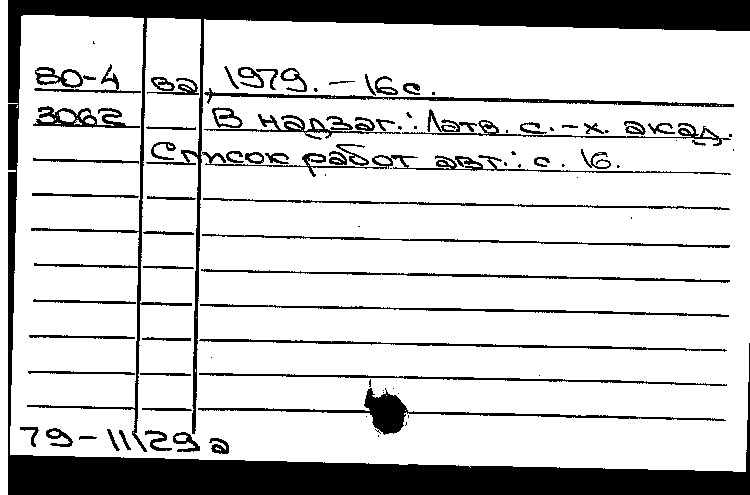 80-4 ва, 1979. – 16 с.
3062 В надзаг.: Латв. с.-х. акад.
Список работ авт.: с. 16.
79-11129а